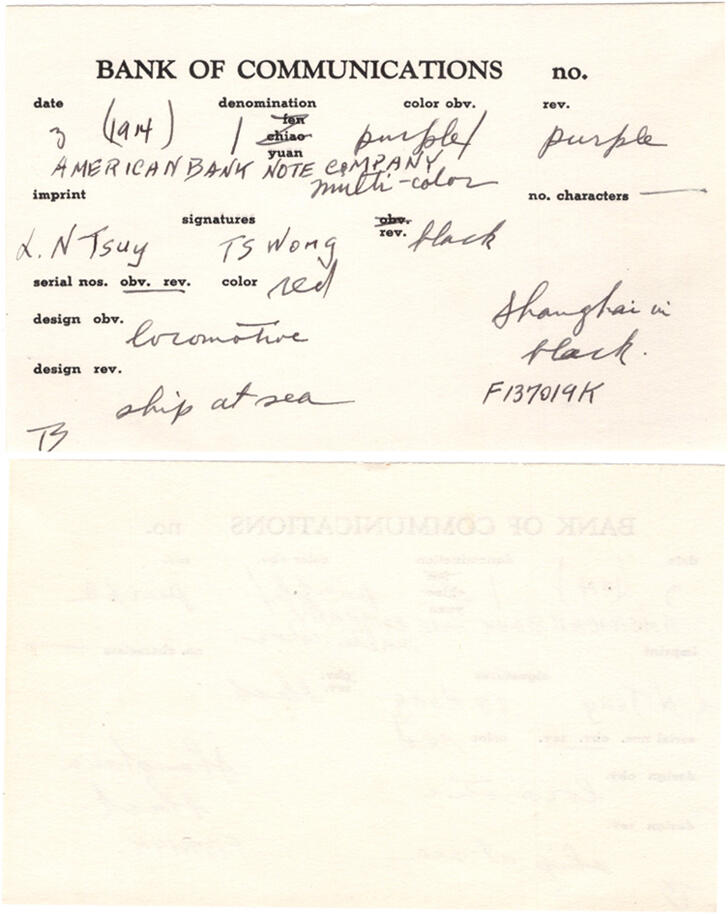 BANK OF COMMUNICATIONS no.
date denomination color obv. rev.
3 (1914) 1 fen chiao yuan purple/ purple
AMERICAN BANK NOTE COMPANY
multi-color
imprint no. characters —
signatures obv. rev.
L. N Tsuy TS Wong black
serial nos. obv. rev. color red
design obv. Shanghai in
locomotive black.
design rev. F137019K
ship at sea
TB